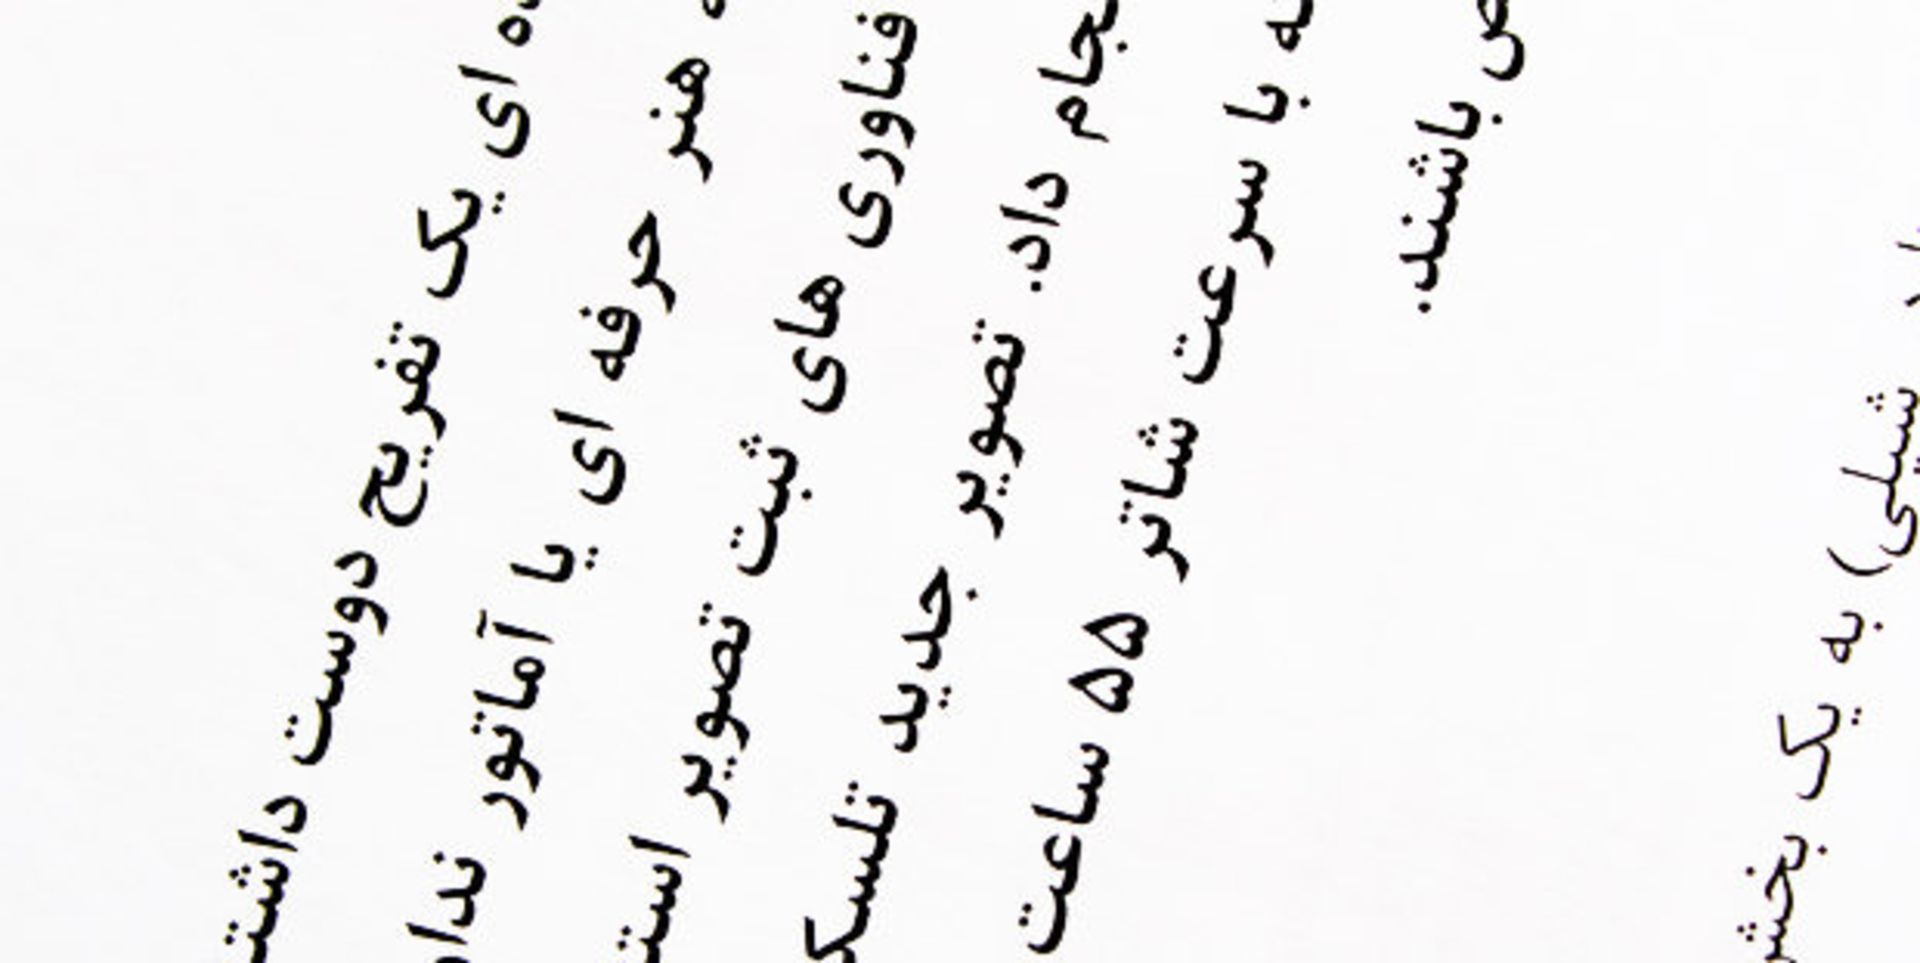 ای یک تفریح دوست داشت
هنر حرفه ای یا آماتور ندا
فناوری های ثبت تصویر است
جام داد. تصویر جدید تلسک
ه با سرعت شاتر ۵۵ ساعت
ص باشند.
شیلی) به یک بخش